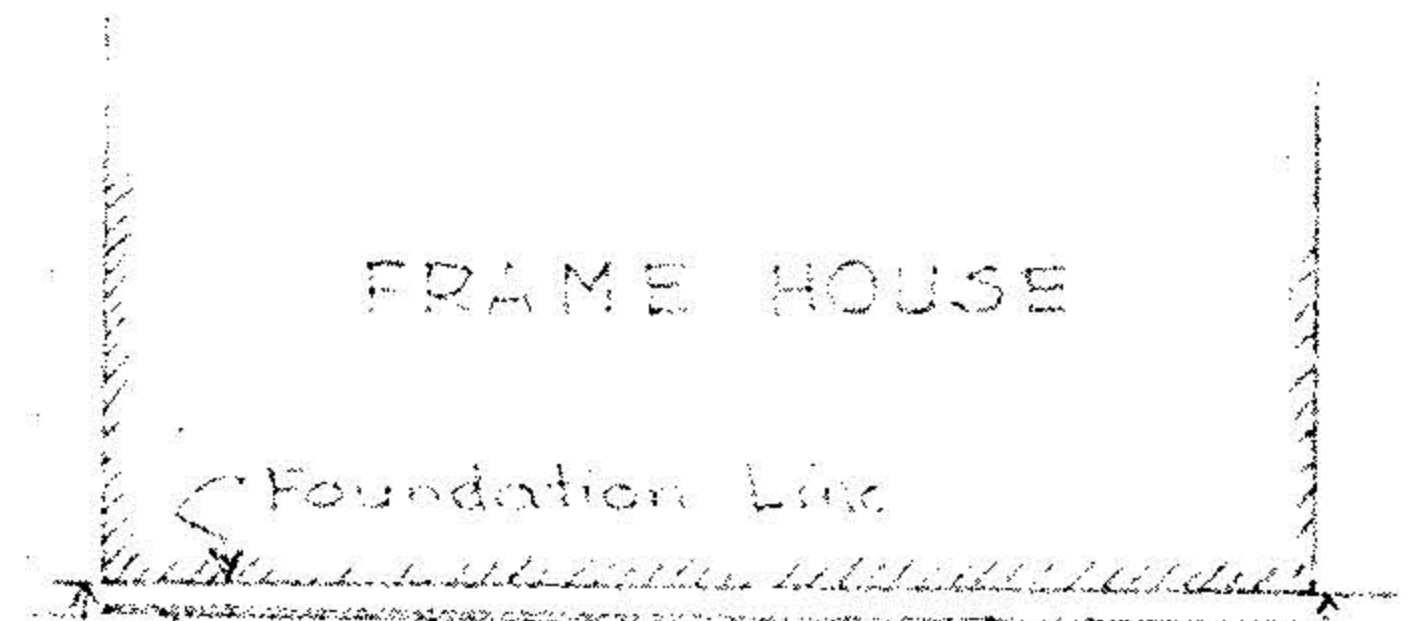 FRAME HOUSE
Foundation Line